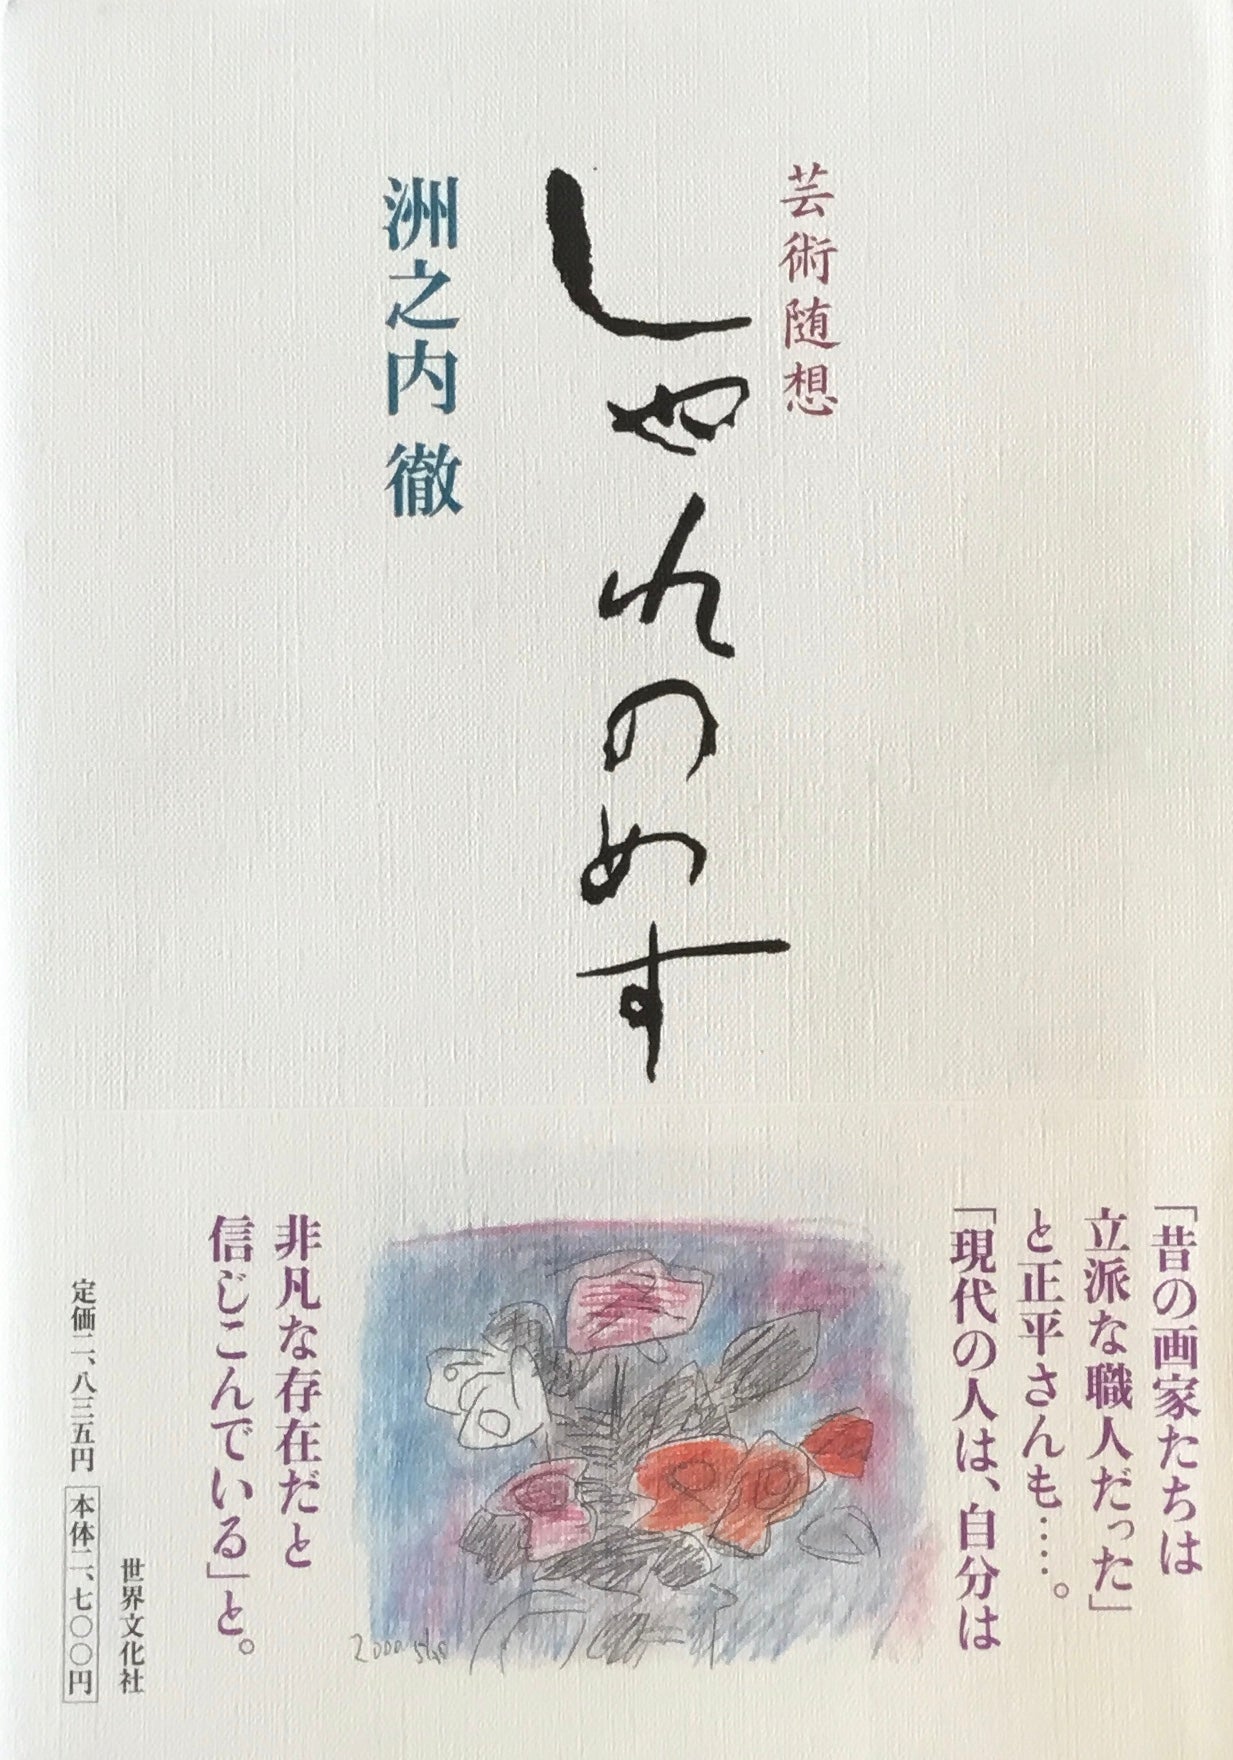 芸術随想
しゃれのめす
洲之内 徹
「昔の画家たちは
立派な職人だった」
と正平さんも……。
「現代の人は、自分は
非凡な存在だと
信じこんでいる」と。
2000 sho
世界文化社
定価二、八三五円 本体二、七〇〇円